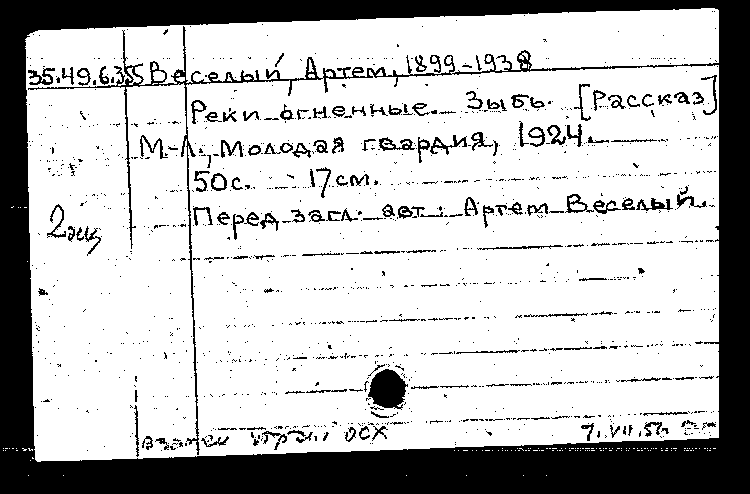 35.49.6.355 Веселый, Артем, 1899-1938
Реки огненные. Зыбь. [Рассказ]
М-Л., Молодая гвардия, 1924.
50с. 17см.
Перед загл. авт.: Артем Веселый.
2 экз
взамен ОСХ 7.VII.5